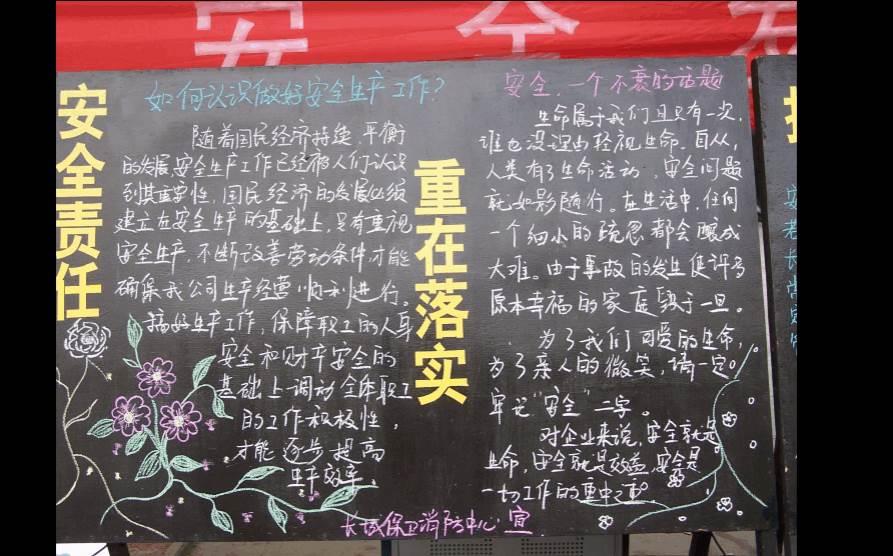 安全
安全责任
重在落实
如何认识做好安全生产工作?
随着国民经济持续、平衡
的发展,安全生产工作已经被人们认识
到其重要性,国民经济的发展必须
建立在安全生产的基础上,只有重视
安全生产,不断改善劳动条件才能
确保我公司生产经营顺利进行。
搞好生产工作,保障职工的人身
安全和财产安全的
基础上调动全体职工
的工作积极性,
才能逐步提高
生产效率。
安全,一个不衰的话题
生命属于我们且只有一次,
谁也没理由轻视生命。自从,
人类有了生命活动,安全问题
就如影随行。在生活中,任何
一个细小的疏忽都会酿成
大难。由于事故的发生使许多
原本幸福的家庭毁于一旦。
为了我们可爱的生命,
为了亲人的微笑,请一定
牢记“安全”二字。
对企业来说,安全就是
生命,安全就是效益,安全是
一切工作的重中之重。
长城保卫消防中心·宣